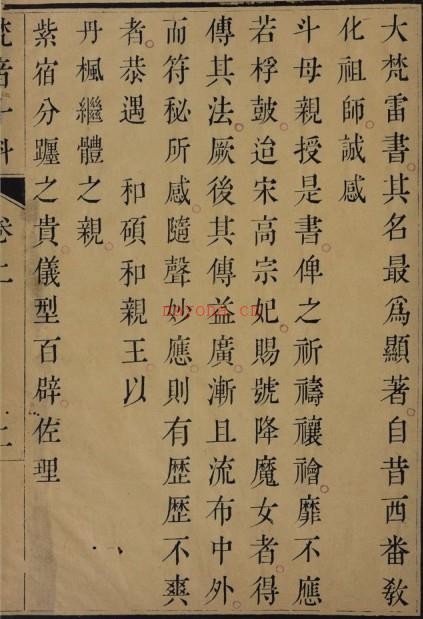 大梵雷書其名最爲顯著自昔西畨敎
化祖師誠感
斗母親授是書俾之祈禱禳禬靡不應
若桴鼓迨宋高宗妃賜號降魔女者得
傳其法厥後其傳益廣漸且流布中外
而符秘所感隨聲妙應則有歷歷不爽
者恭遇 和碩和親王以
丹楓繼體之親
紫宿分躔之貴儀型百辟佐理
卷二